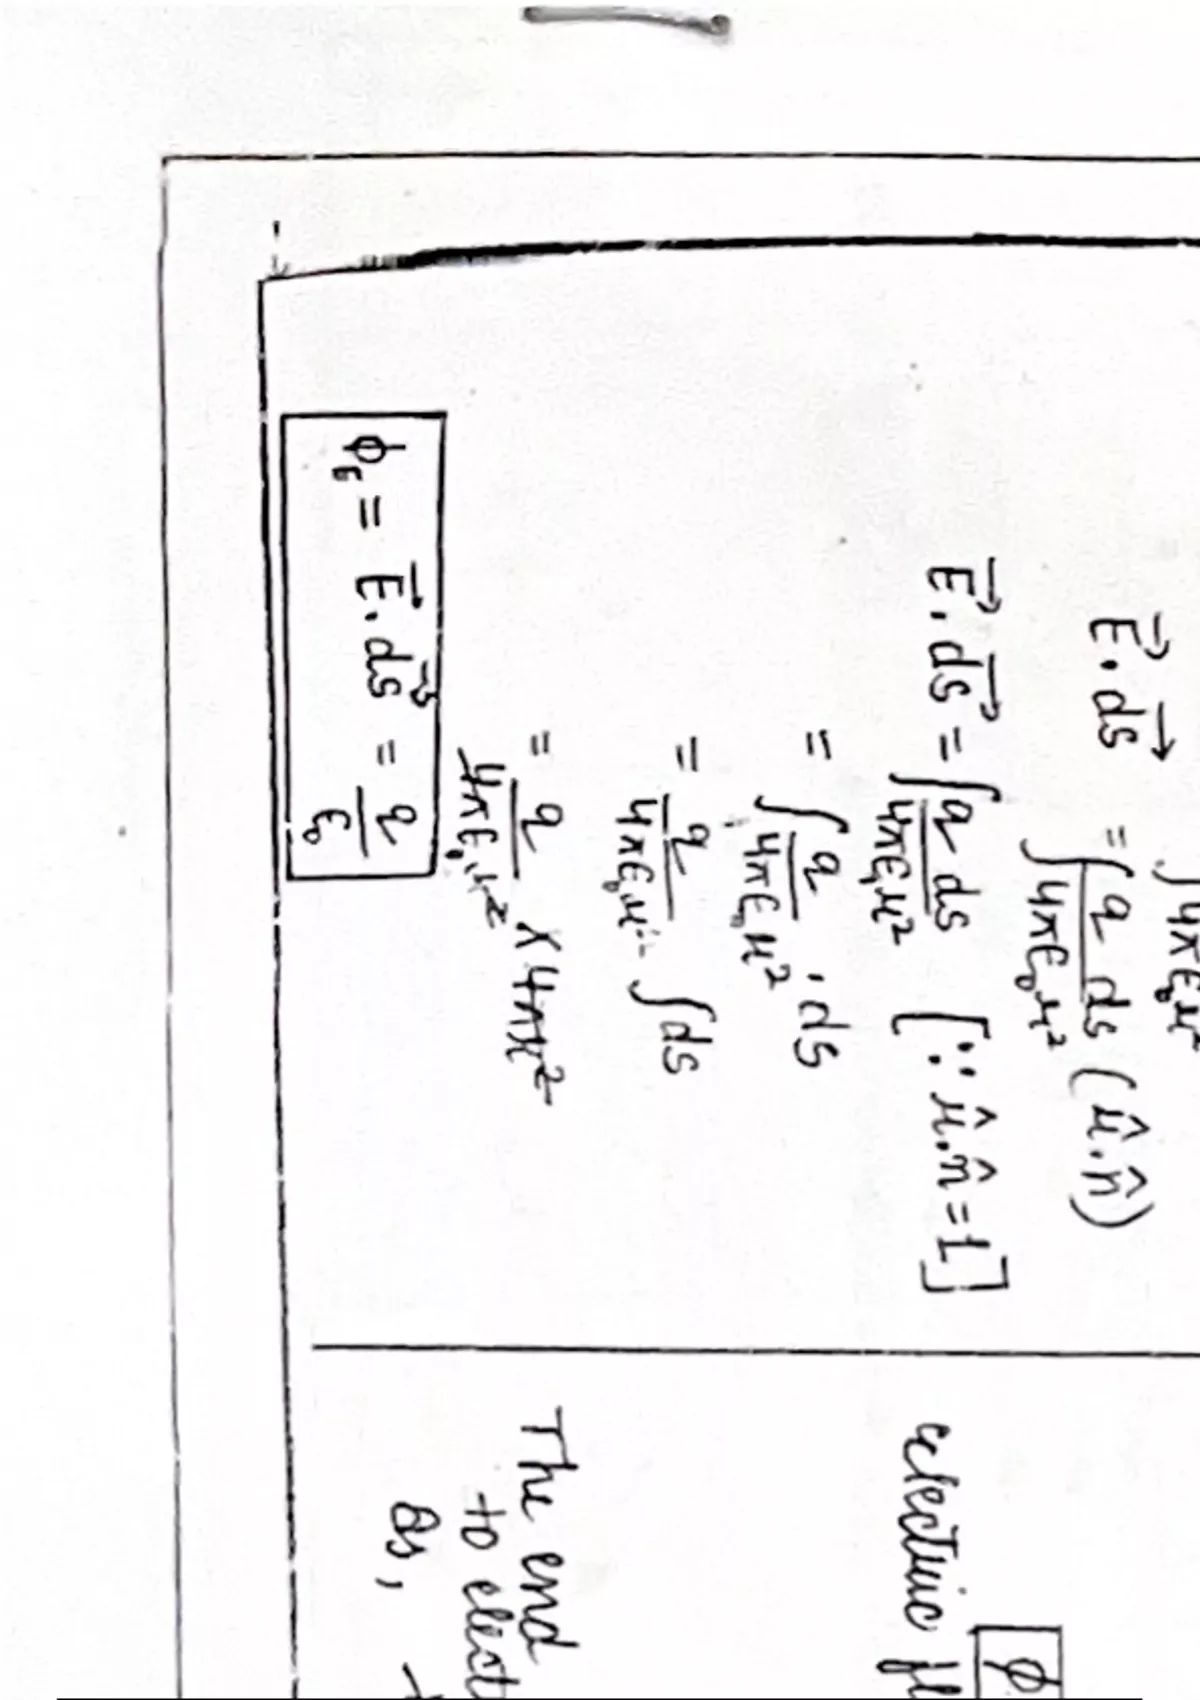 ∫ 4πε₀r²
E⃗ . ds⃗ = ∫ q ds / 4πε₀r² (r̂.n̂)
E⃗ . ds⃗ = ∫ q ds / 4πε₀r² [∵ r̂.n̂ = 1]
= ∫ q / 4πε₀r² . ds
= q / 4πε₀r² ∫ ds
= q / 4πε₀r² × 4πr²
ϕ = E⃗ . ds⃗ = q / ε₀
ϕ
electric fl
The end
to elect
as,